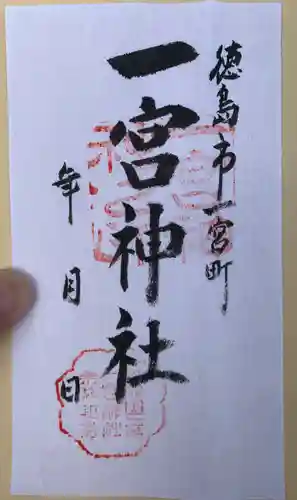 徳島市一宮町
一宮神社
年 月 日